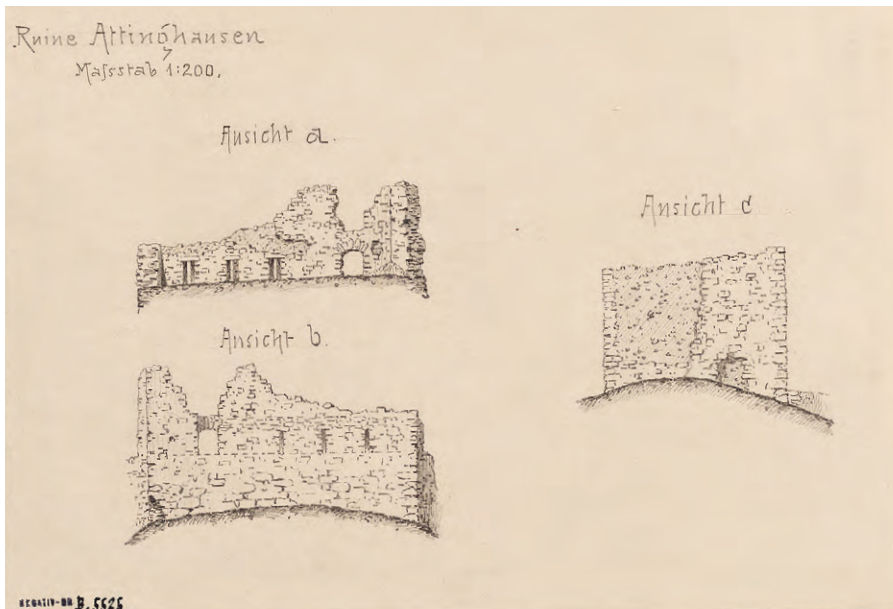 Ruine Attinghausen
Maſsstab 1:200.
Ansicht a.
Ansicht b.
Ansicht c
NEGATIV-NR B. 5525